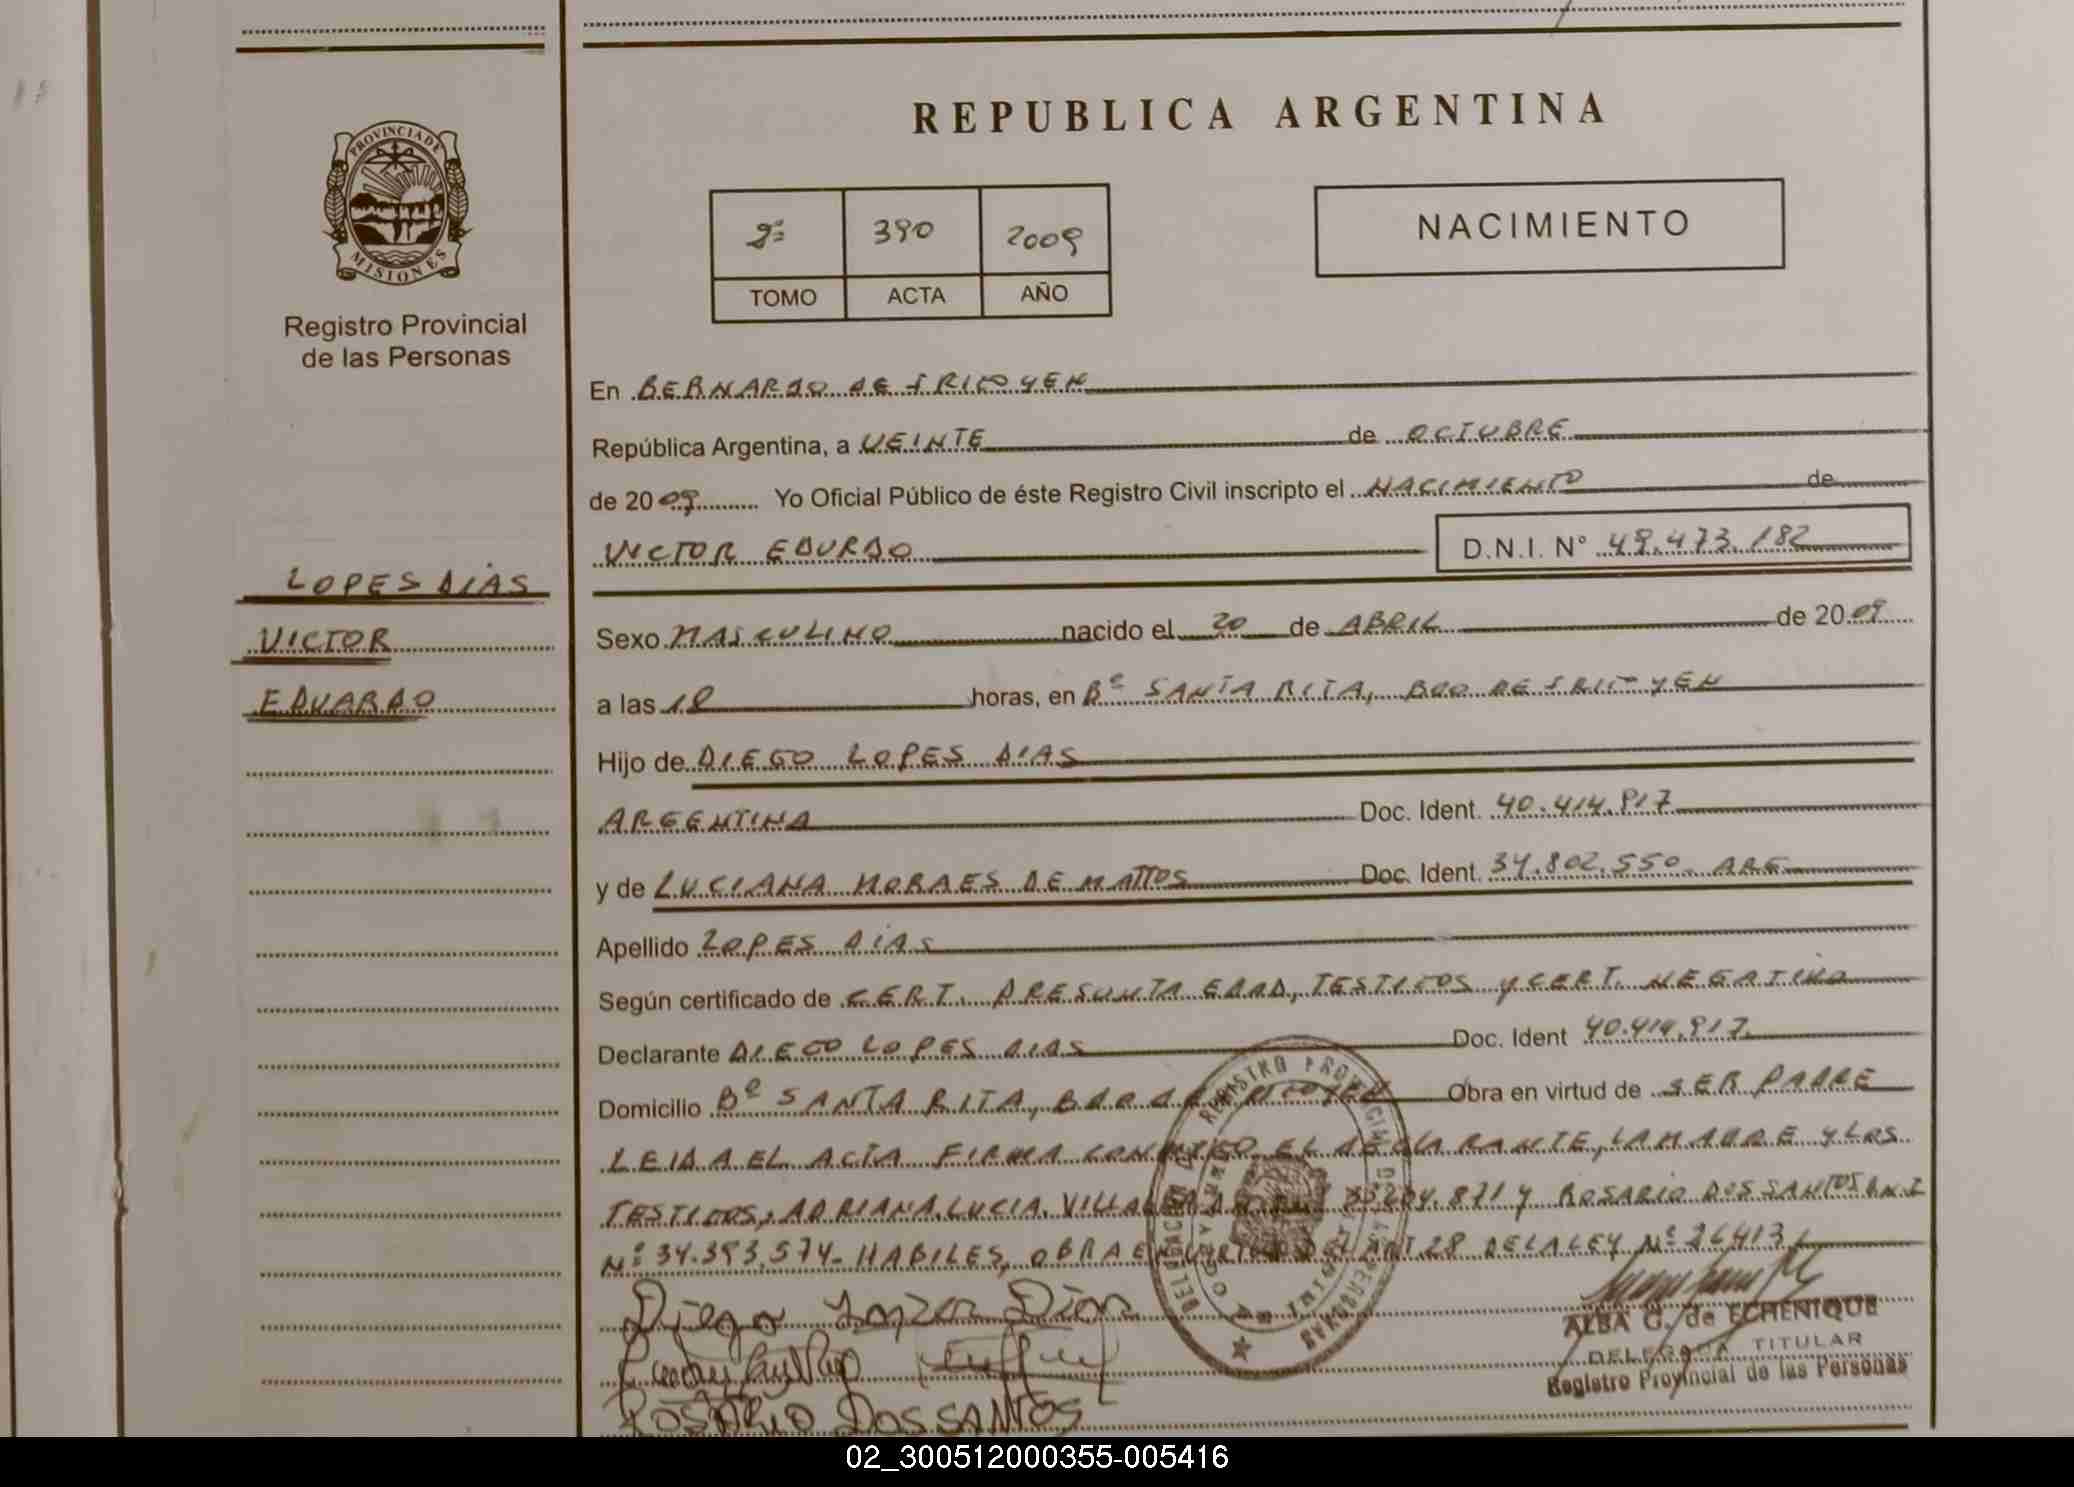 REPUBLICA ARGENTINA
PROVINCIA DE MISIONES
Registro Provincial
de las Personas
2º 390 2009
TOMO ACTA AÑO
NACIMIENTO
En BERNARDO DE IRIGOYEN
República Argentina, a VEINTE de OCTUBRE
de 2009 Yo Oficial Público de éste Registro Civil inscripto el NACIMIENTO de
VICTOR EDURDO D.N.I. Nº 49.473.182
LOPES DIAS
VICTOR
EDUARDO
Sexo MASCULINO nacido el 20 de ABRIL de 2009
a las 18 horas, en Bº SANTA RITA, BDO DE IRIGOYEN
Hijo de DIEGO LOPES DIAS
ARGENTINA Doc. Ident. 40.414.917
y de LUCIANA MORAES DE MATTOS Doc. Ident. 34.802.550 ARG
Apellido LOPES DIAS
Según certificado de CERT. PRESUNTA EDAD, TESTIGOS y CERT. NEGATIVO
Declarante DIEGO LOPES DIAS Doc. Ident 40.414.917
Domicilio Bº SANTA RITA, BDO DE IRIGOYEN Obra en virtud de SER PADRE
LEIDA EL ACTA FIRMA CONMIGO EL DECLARANTE, LA MADRE y LOS
TESTIGOS, ADRIANA LUCIA VILLALBA 33.204.871 y ROSARIO DOS SANTOS D.N.I
Nº 34.393.574- HABILES, OBRA EN VIRTUD DEL ART 28 DE LA LEY Nº 26413
Diego Lopes Dias
ROSARIO DOS SANTOS
REGISTRO PROVINCIAL DE LAS PERSONAS
ALBA G. de ECHENIQUE
DELEGADA TITULAR
Registro Provincial de las Personas
02_300512000355-005416